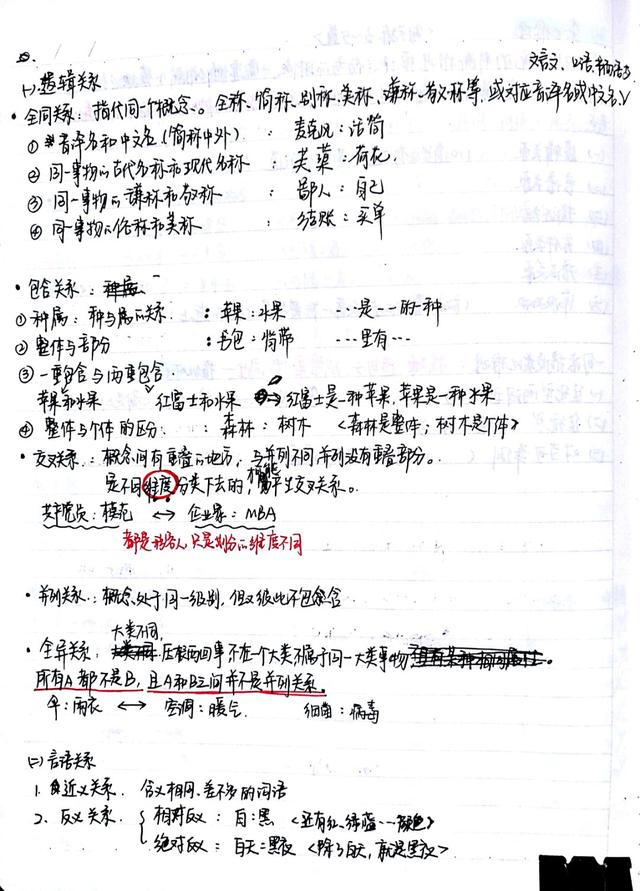 文言文、口语书面语
㈠ 逻辑关系
• 全同关系：指代同一个概念。全称、简称、别称、美称、谦称、敬称等，或对应音译名或中文名
① 音译名和中文名（简称中外）：麦克风：话筒
② 同一事物的古代名称和现代名称：芙蕖：荷花
③ 同一事物的谦称和敬称：鄙人：自己
④ 同一事物的俗称和美称：结账：买单
• 包含关系：种属
① 种属：种与属的关系：苹果：水果 …是…的一种
② 整体与部分：书包：背带 …里有…
③ 一重包含与两重包含
苹果和水果 红富士和水果 红富士是一种苹果,苹果是一种水果
④ 整体与个体的区分：森林：树木 <森林是整体；树木是个体>
• 交叉关系：概念间有重叠的地方，与并列不同并列没有重叠部分。
是不同维度分类下去的，才能产生交叉关系。
共产党员：模范 ↔ 企业家：MBA
都是 只是划分的维度不同
• 并列关系：概念处于同一级别，但又彼此不包含
大类不同，
• 全异关系：压根两回事不在一个大类不属于同一大类事物
所有A都不是B，且A和B之间并不是并列关系。
伞：雨衣 ↔ 空调：暖气 细菌：病毒
㈡ 言语关系
1. 近义关系. 含义相同、差不多的词语
2. 反义关系. { 相对反义：白：黑 <还有红、绿、蓝…颜色>
绝对反义：白天：黑夜 <除了白天，就是黑夜>